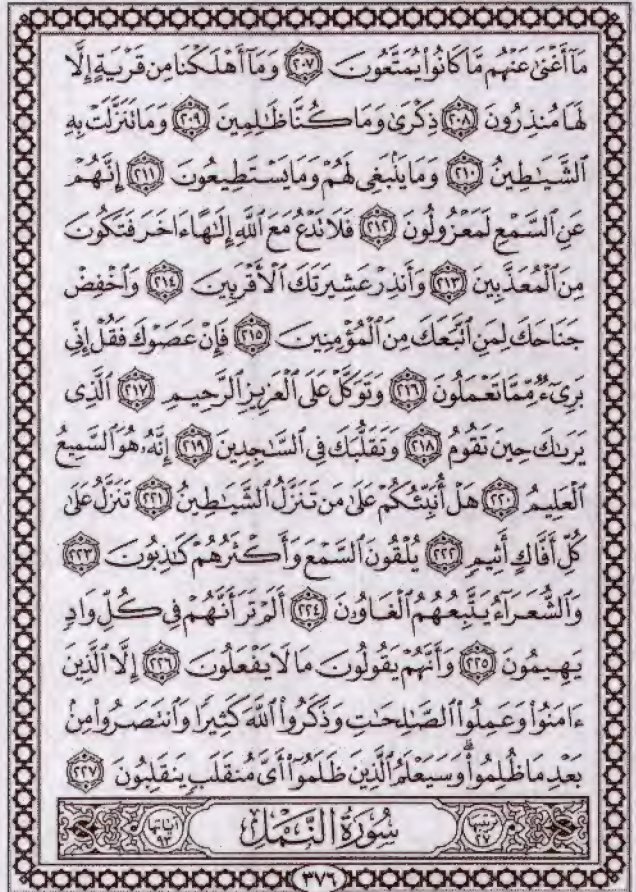 مَآ أَغْنَىٰ عَنْهُم مَّا كَانُوا۟ يُمَتَّعُونَ ٢٠٧ وَمَآ أَهْلَكْنَا مِن قَرْيَةٍ إِلَّا
لَهَا مُنذِرُونَ ٢٠٨ ذِكْرَىٰ وَمَا كُنَّا ظَـٰلِمِينَ ٢٠٩ وَمَا تَنَزَّلَتْ بِهِ
ٱلشَّيَـٰطِينُ ٢١٠ وَمَا يَنۢبَغِى لَهُمْ وَمَا يَسْتَطِيعُونَ ٢١١ إِنَّهُمْ
عَنِ ٱلسَّمْعِ لَمَعْزُولُونَ ٢١٢ فَلَا تَدْعُ مَعَ ٱللَّهِ إِلَـٰهًا ءَاخَرَ فَتَكُونَ
مِنَ ٱلْمُعَذَّبِينَ ٢١٣ وَأَنذِرْ عَشِيرَتَكَ ٱلْأَقْرَبِينَ ٢١٤ وَٱخْفِضْ
جَنَاحَكَ لِمَنِ ٱتَّبَعَكَ مِنَ ٱلْمُؤْمِنِينَ ٢١٥ فَإِنْ عَصَوْكَ فَقُلْ إِنِّى
بَرِىٓءٌ مِّمَّا تَعْمَلُونَ ٢١٦ وَتَوَكَّلْ عَلَى ٱلْعَزِيزِ ٱلرَّحِيمِ ٢١٧ ٱلَّذِى
يَرَىٰكَ حِينَ تَقُومُ ٢١٨ وَتَقَلُّبَكَ فِى ٱلسَّـٰجِدِينَ ٢١٩ إِنَّهُۥ هُوَ ٱلسَّمِيعُ
ٱلْعَلِيمُ ٢٢٠ هَلْ أُنَبِّئُكُمْ عَلَىٰ مَن تَنَزَّلُ ٱلشَّيَـٰطِينُ ٢٢١ تَنَزَّلُ عَلَىٰ
كُلِّ أَفَّاكٍ أَثِيمٍ ٢٢٢ يُلْقُونَ ٱلسَّمْعَ وَأَكْثَرُهُمْ كَـٰذِبُونَ ٢٢٣
وَٱلشُّعَرَآءُ يَتَّبِعُهُمُ ٱلْغَاوُۥنَ ٢٢٤ أَلَمْ تَرَ أَنَّهُمْ فِى كُلِّ وَادٍ
يَهِيمُونَ ٢٢٥ وَأَنَّهُمْ يَقُولُونَ مَا لَا يَفْعَلُونَ ٢٢٦ إِلَّا ٱلَّذِينَ
ءَامَنُوا۟ وَعَمِلُوا۟ ٱلصَّـٰلِحَـٰتِ وَذَكَرُوا۟ ٱللَّهَ كَثِيرًا وَٱنتَصَرُوا۟ مِنۢ
بَعْدِ مَا ظُلِمُوا۟ ۗ وَسَيَعْلَمُ ٱلَّذِينَ ظَلَمُوٓا۟ أَىَّ مُنقَلَبٍ يَنقَلِبُونَ ٢٢٧
ترتيبها ٢٧ سُورَةُ النَّمْل آياتها ٩٣
٣٧٦